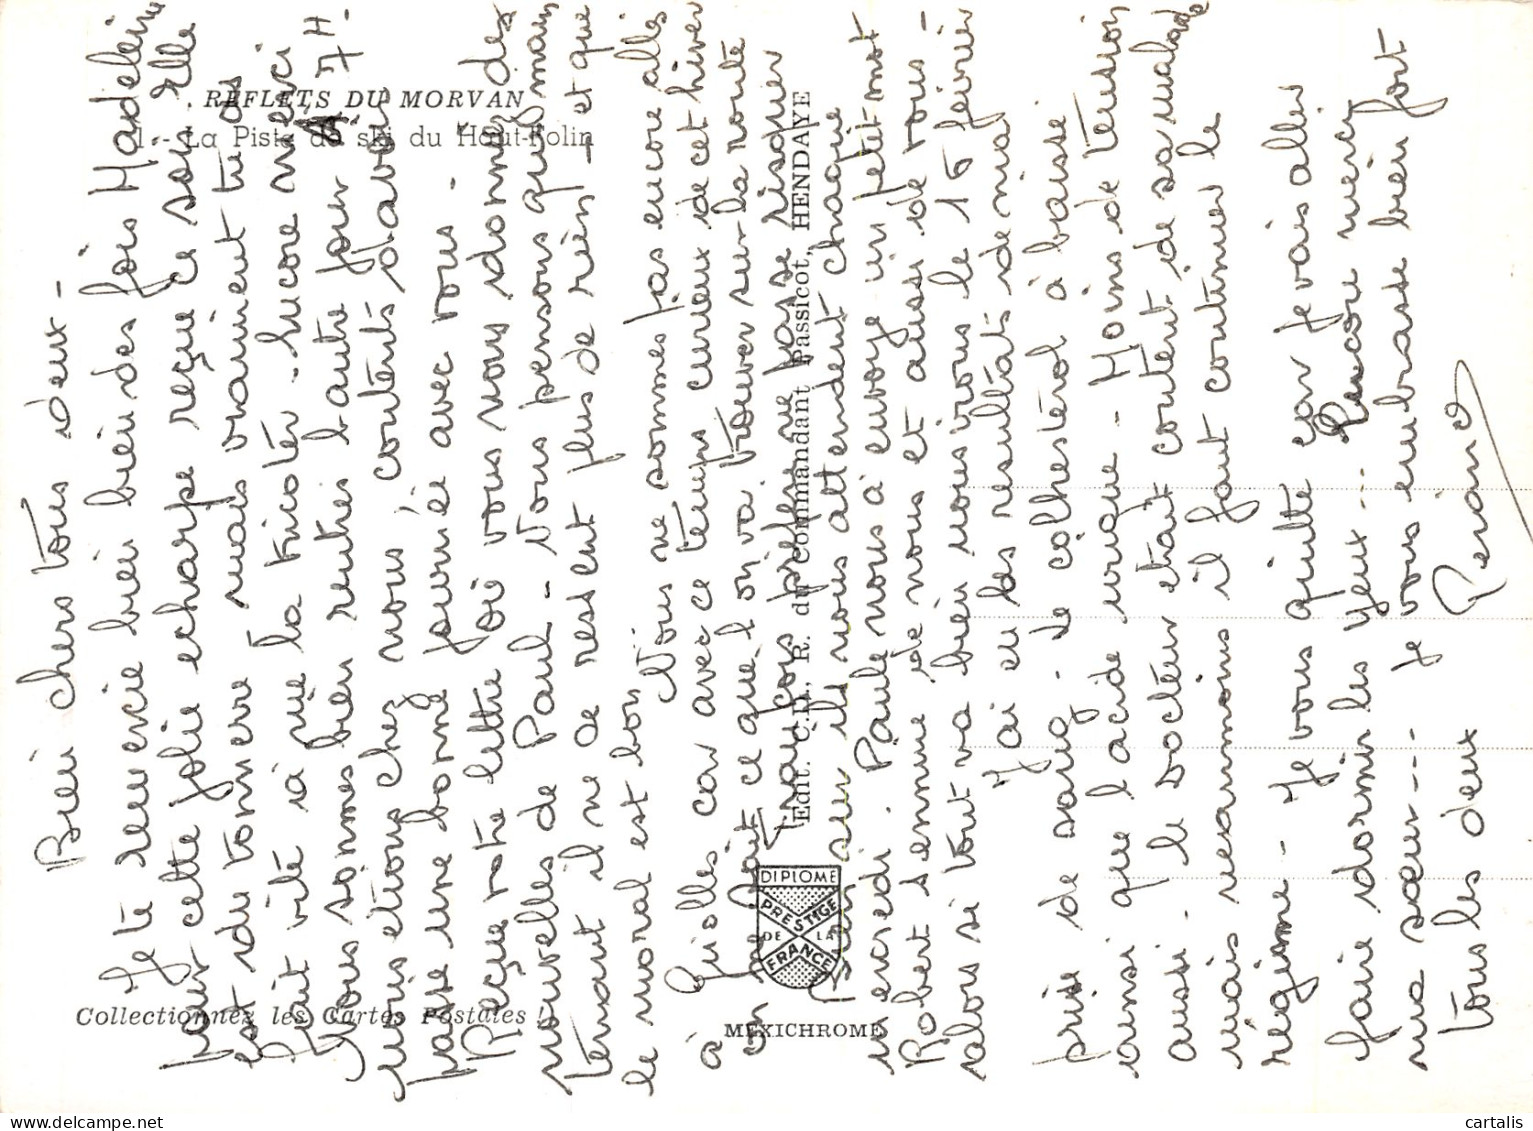 . REFLETS DU MORVAN
1. - La Piste de ski du Haut-Folin
Collectionnez les Cartes Postales !
Edit. C.D., R. du Commandant Passicot, HENDAYE
DIPLOME
PRESTIGE
DE LA
FRANCE
MEXICHROME
74.
Bien chers tous deux -
Je te remercie bien bien des fois Madeleine
pour cette jolie echarpe reçue ce soir elle
est du tonnerre mais vraiment tu as
fait vite à me la tricoter - encore merci
Nous sommes bien rentrés l'autre jour
nous etions chez nous, contents d'avoir
passé une bonne journée avec vous.
Reçue votre lettre où vous nous donnez des
nouvelles de Paul - Nous pensons que main
tenant il ne se ressent plus de rien - et que
le moral est bon
Nous ne sommes pas encore allés
à Quolles car avec ce temps curieux de cet hiver
on ne sait ce que l'on va trouver sur la route
François préfère ne pas se risquer
bien sur ils nous attendent chaque
mercredi. Paule nous a envoyé un petit mot
Robert semme de nous et aussi de vous -
alors si tout va bien nous irons le 16 février
J'ai eu les resultats de ma
prise de sang - le colhesterol à baissé
ainsi que l'acide urique - Moins de tension
aussi. le docteur etait content de sa malade
mais neanmoins il faut continuer le
régime - Je vous quitte car je vais aller
faire dormir les yeux... Encore merci
ma sœur... Je vous embrasse bien fort
tous les deux